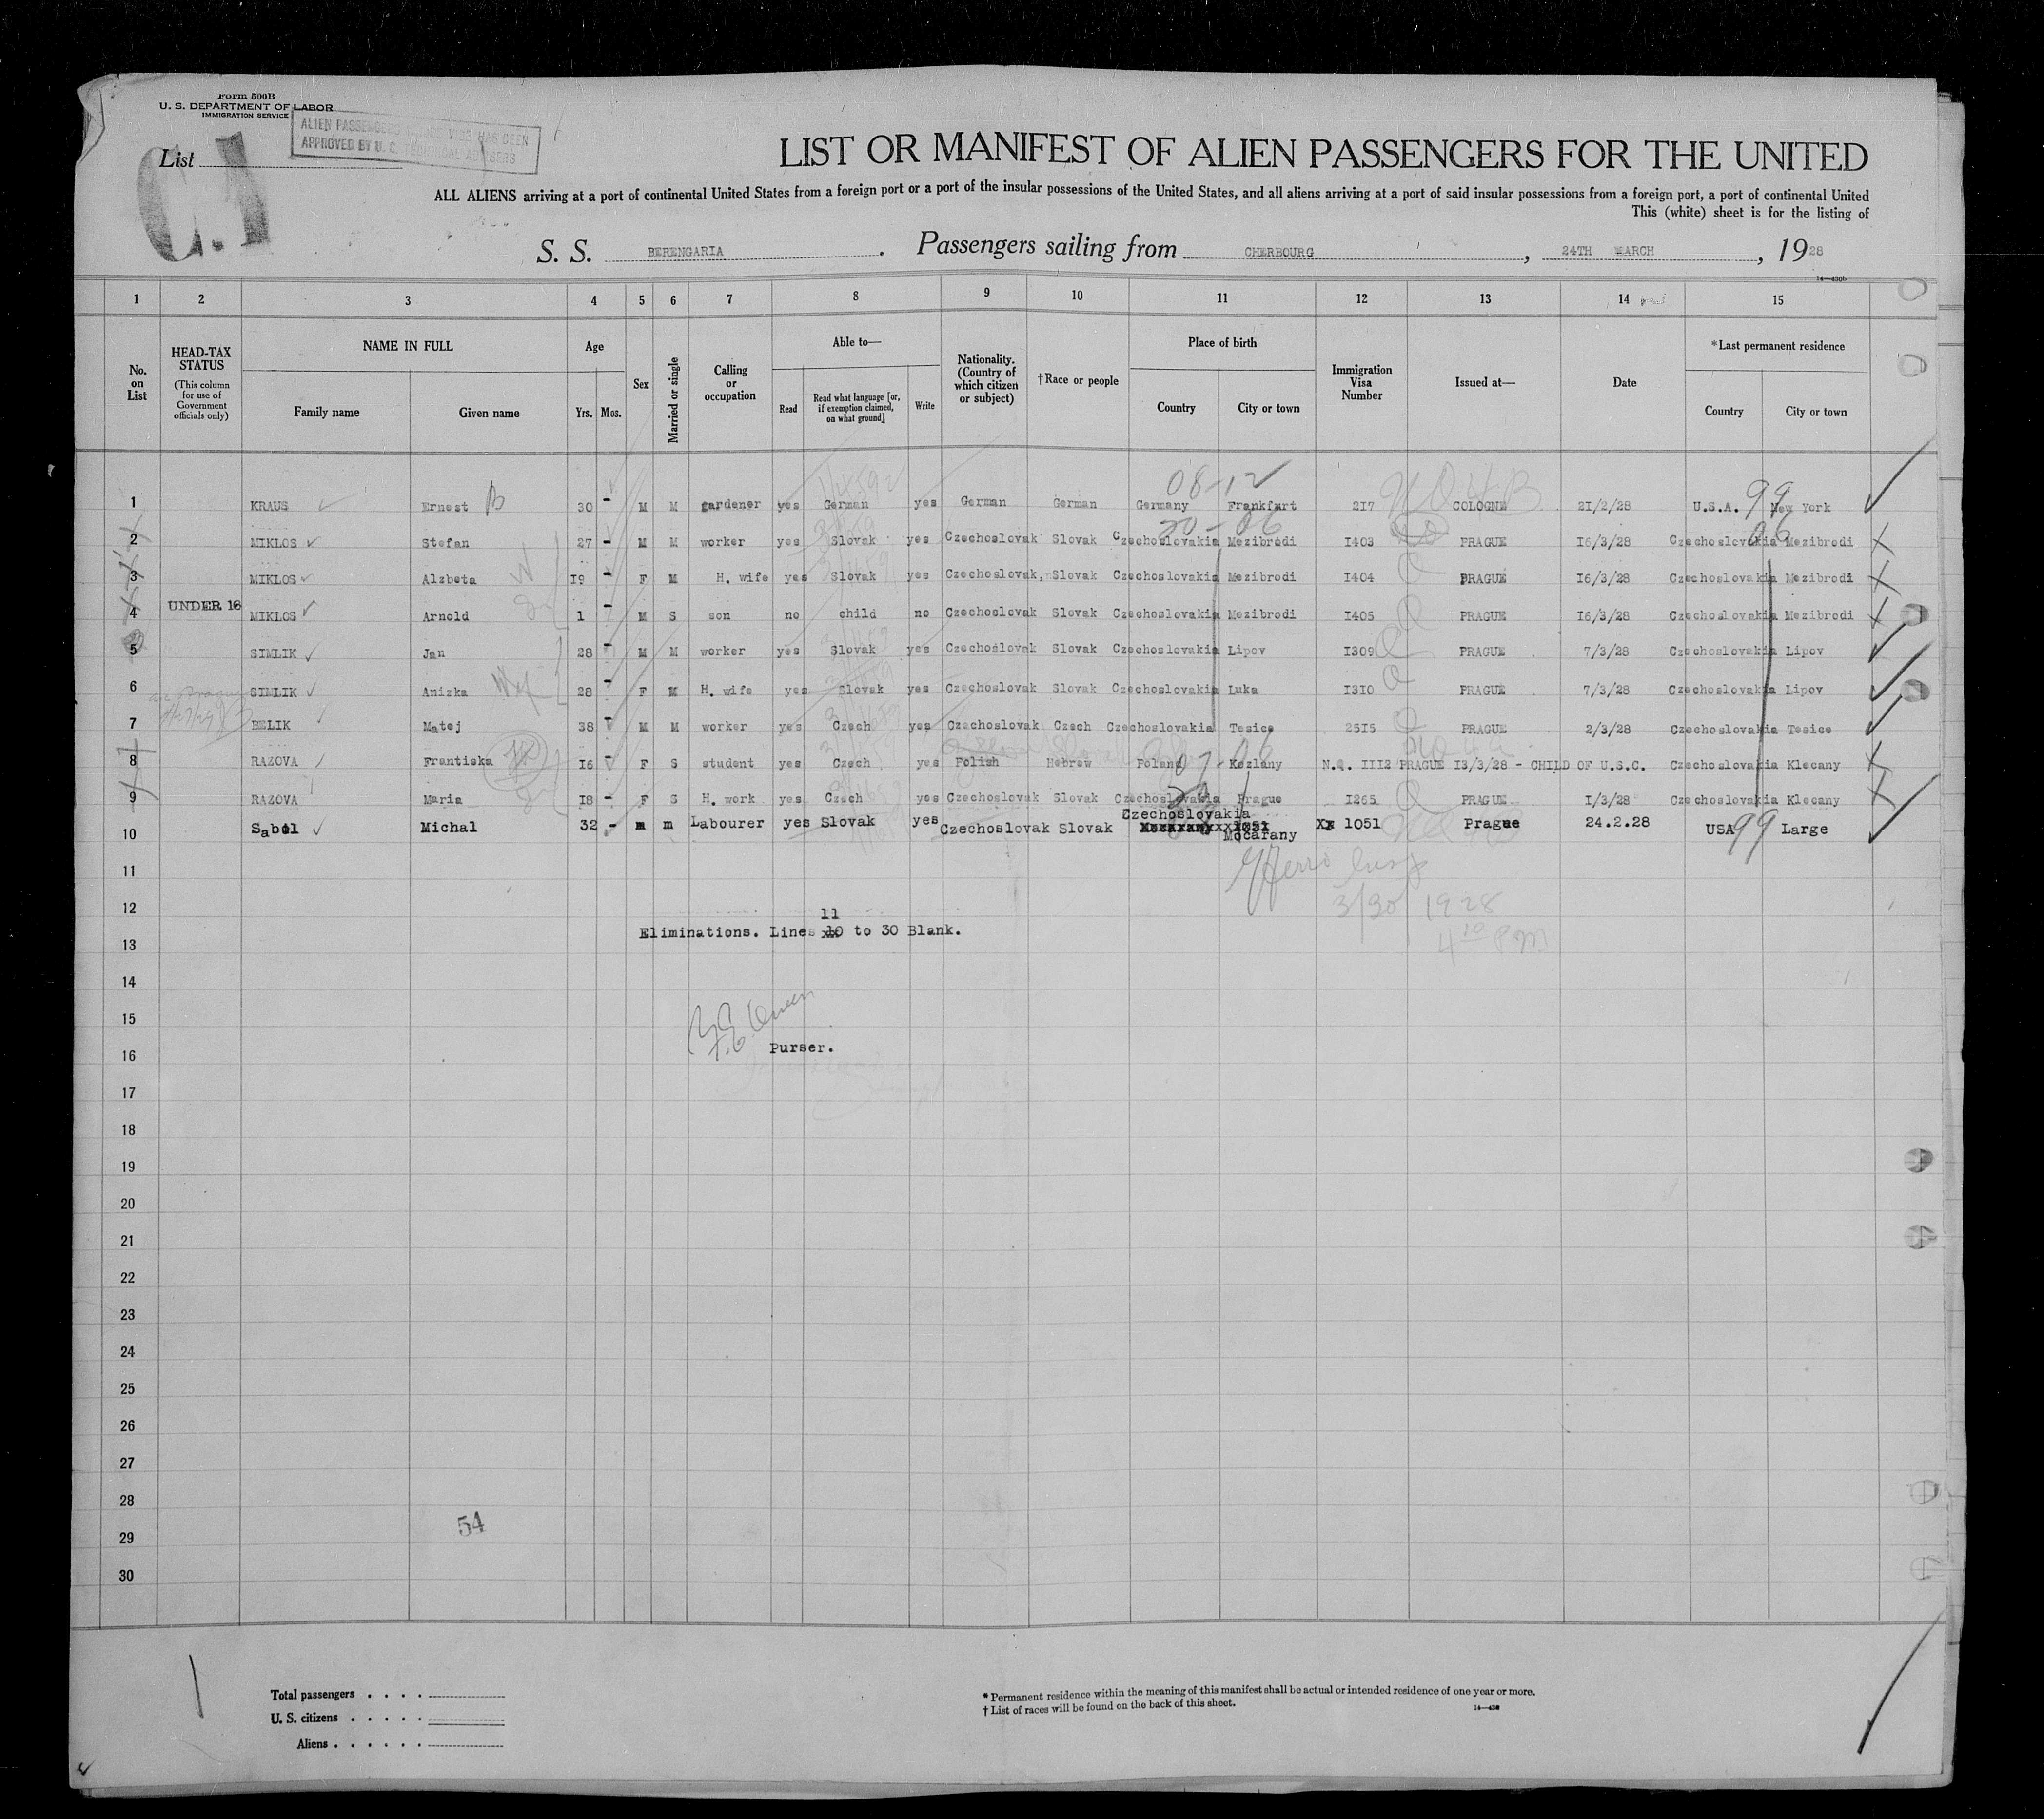 Form 500B
U. S. DEPARTMENT OF LABOR
IMMIGRATION SERVICE
ALIEN PASSENGERS WHOSE VISE HAS BEEN
APPROVED BY U. S. TECHNICAL ADVISERS
List
LIST OR MANIFEST OF ALIEN PASSENGERS FOR THE UNITED
ALL ALIENS arriving at a port of continental United States from a foreign port or a port of the insular possessions of the United States, and all aliens arriving at a port of said insular possessions from a foreign port, a port of continental United
This (white) sheet is for the listing of
S. S. BERENGARIA. Passengers sailing from CHERBOURG, 24TH MARCH, 1928
14—430b
1 2 3 4 5 6 7 8 9 10 11 12 13 14 15
No. on List
HEAD-TAX STATUS
(This column for use of Government officials only)
NAME IN FULL
Family name
Given name
Age
Yrs. Mos.
Sex
Married or single
Calling or occupation
Able to—
Read
Read what language [or, if exemption claimed, on what ground]
Write
Nationality. (Country of which citizen or subject)
†Race or people
Place of birth
Country
City or town
Immigration Visa Number
Issued at—
Date
*Last permanent residence
Country
City or town
08-12
1 KRAUS Ernest B 30 - M M gardener yes German yes German German Germany Frankfurt 217 COLOGNE 21/2/28 U.S.A. 99 New York
20-06 06
2 MIKLOS Stefan 27 - M M worker yes Slovak yes Czechoslovak Slovak Czechoslovakia Mezibrodi I403 PRAGUE I6/3/28 Czechoslovakia Mezibrodi
3 MIKLOS Alzbeta I9 - F M H. wife yes Slovak yes Czechoslovak, Slovak Czechoslovakia Mezibrodi I404 PRAGUE I6/3/28 Czechoslovakia Mezibrodi
4 UNDER 16 MIKLOS Arnold 1 - M S son no child no Czechoslovak Slovak Czechoslovakia Mezibrodi I405 PRAGUE I6/3/28 Czechoslovakia Mezibrodi
5 SIMLIK Jan 28 - M M worker yes Slovak yes Czechoslovak Slovak Czechoslovakia Lipov I309 PRAGUE 7/3/28 Czechoslovakia Lipov
6 SIMLIK Anizka 28 - F M H. wife yes Slovak yes Czechoslovak Slovak Czechoslovakia Luka I310 PRAGUE 7/3/28 Czechoslovakia Lipov
7 BELIK Matej 38 - M M worker yes Czech yes Czechoslovak Czech Czechoslovakia Tesice 2515 PRAGUE 2/3/28 Czechoslovakia Tesice
8 RAZOVA Frantiska I6 F S student yes Czech yes Polish Hebrew Poland 07-06 Kozlany N.Q. III2 PRAGUE I3/3/28 - CHILD OF U.S.C. Czechoslovakia Klecany
9 RAZOVA Maria I8 - F S H. work yes Czech yes Czechoslovak Slovak Czechoslovakia Prague I265 PRAGUE I/3/28 Czechoslovakia Klecany
10 Sabol Michal 32 - m m Labourer yes Slovak yes Czechoslovak Slovak Czechoslovakia Mocarany 1051 Prague 24.2.28 USA 99 Large
11
3/30 1928
12
11
Eliminations. Lines 10 to 30 Blank.
4 10 PM
13
14
15
16
Purser.
17
18
19
20
21
22
23
24
25
26
27
28
54
29
30
Total passengers
U. S. citizens
Aliens
* Permanent residence within the meaning of this manifest shall be actual or intended residence of one year or more.
† List of races will be found on the back of this sheet.
14—430